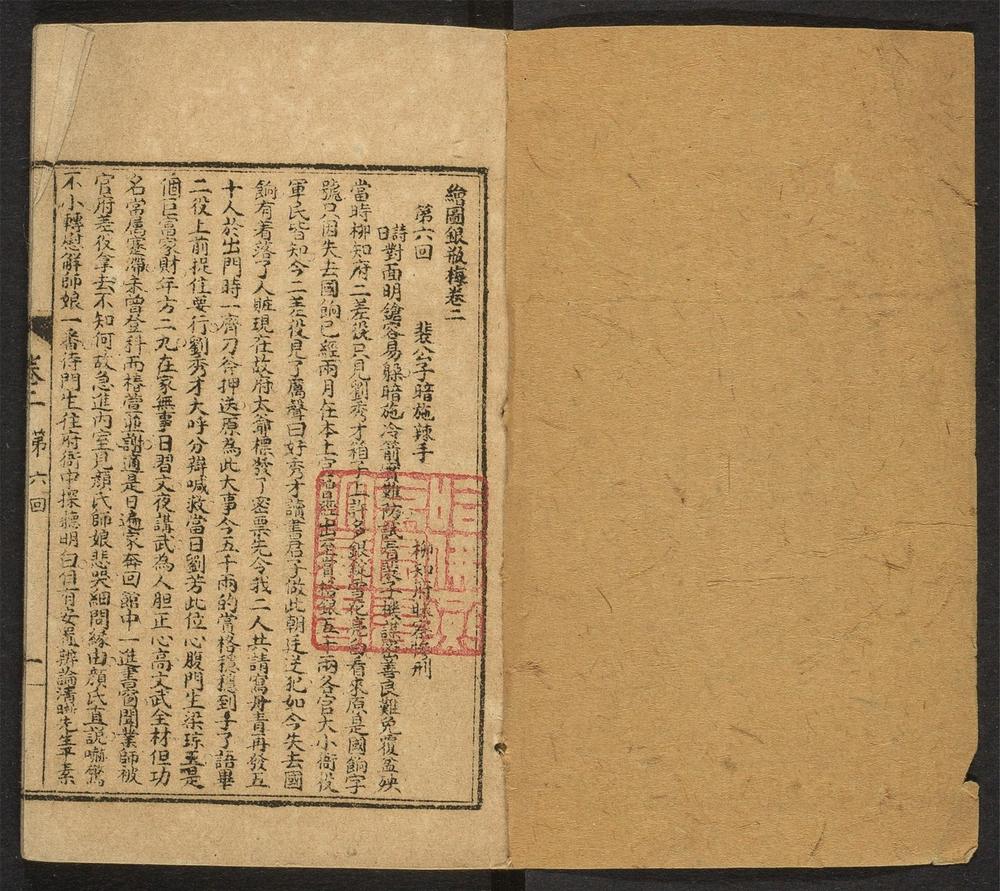 繪圖銀瓶梅卷二
第六回 裴公子暗施辣手 柳知府昧屈慘刑
詩曰 對面明鎗容易躱 暗施冷箭實難防 試看裴子機謀密 善良難免覆盆殃
當時柳知府二差役只見劉秀才箱子上許多銀錠雪花亮白看來原是國餉字
號只因失去國餉已經兩月在本土官 出至賞格銀五千兩各官大小衙役
軍民皆知今二差役見了厲聲曰好秀才讀書君子做此朝廷逆犯如今失去國
餉有着落了人賍現在故府太爺標發了密票先令我二人共請寫丹青再發五
十人於出門時一齊刀斧押送原為此大事今五千兩的賞格穩穩到手了語畢
二役上前捉住要行劉秀才大呼分辯喊救當日劉芳此位心腹門生梁琼玉是
個巨富家財年方二九在家無事日習文夜講武為人胆正心高文武全材但功
名常屬蹇滯未曾登科而椿萱並謝適是日遍家奔回館中一進書窗聞業師被
官府差役拿去不知何故急進內室見顏氏師娘悲哭細問緣由顏氏直說嚇驚
不小轉慰解師娘一番待門生往府衙中探聽明白但有安 辨論清 先生平素
卷二 第六回